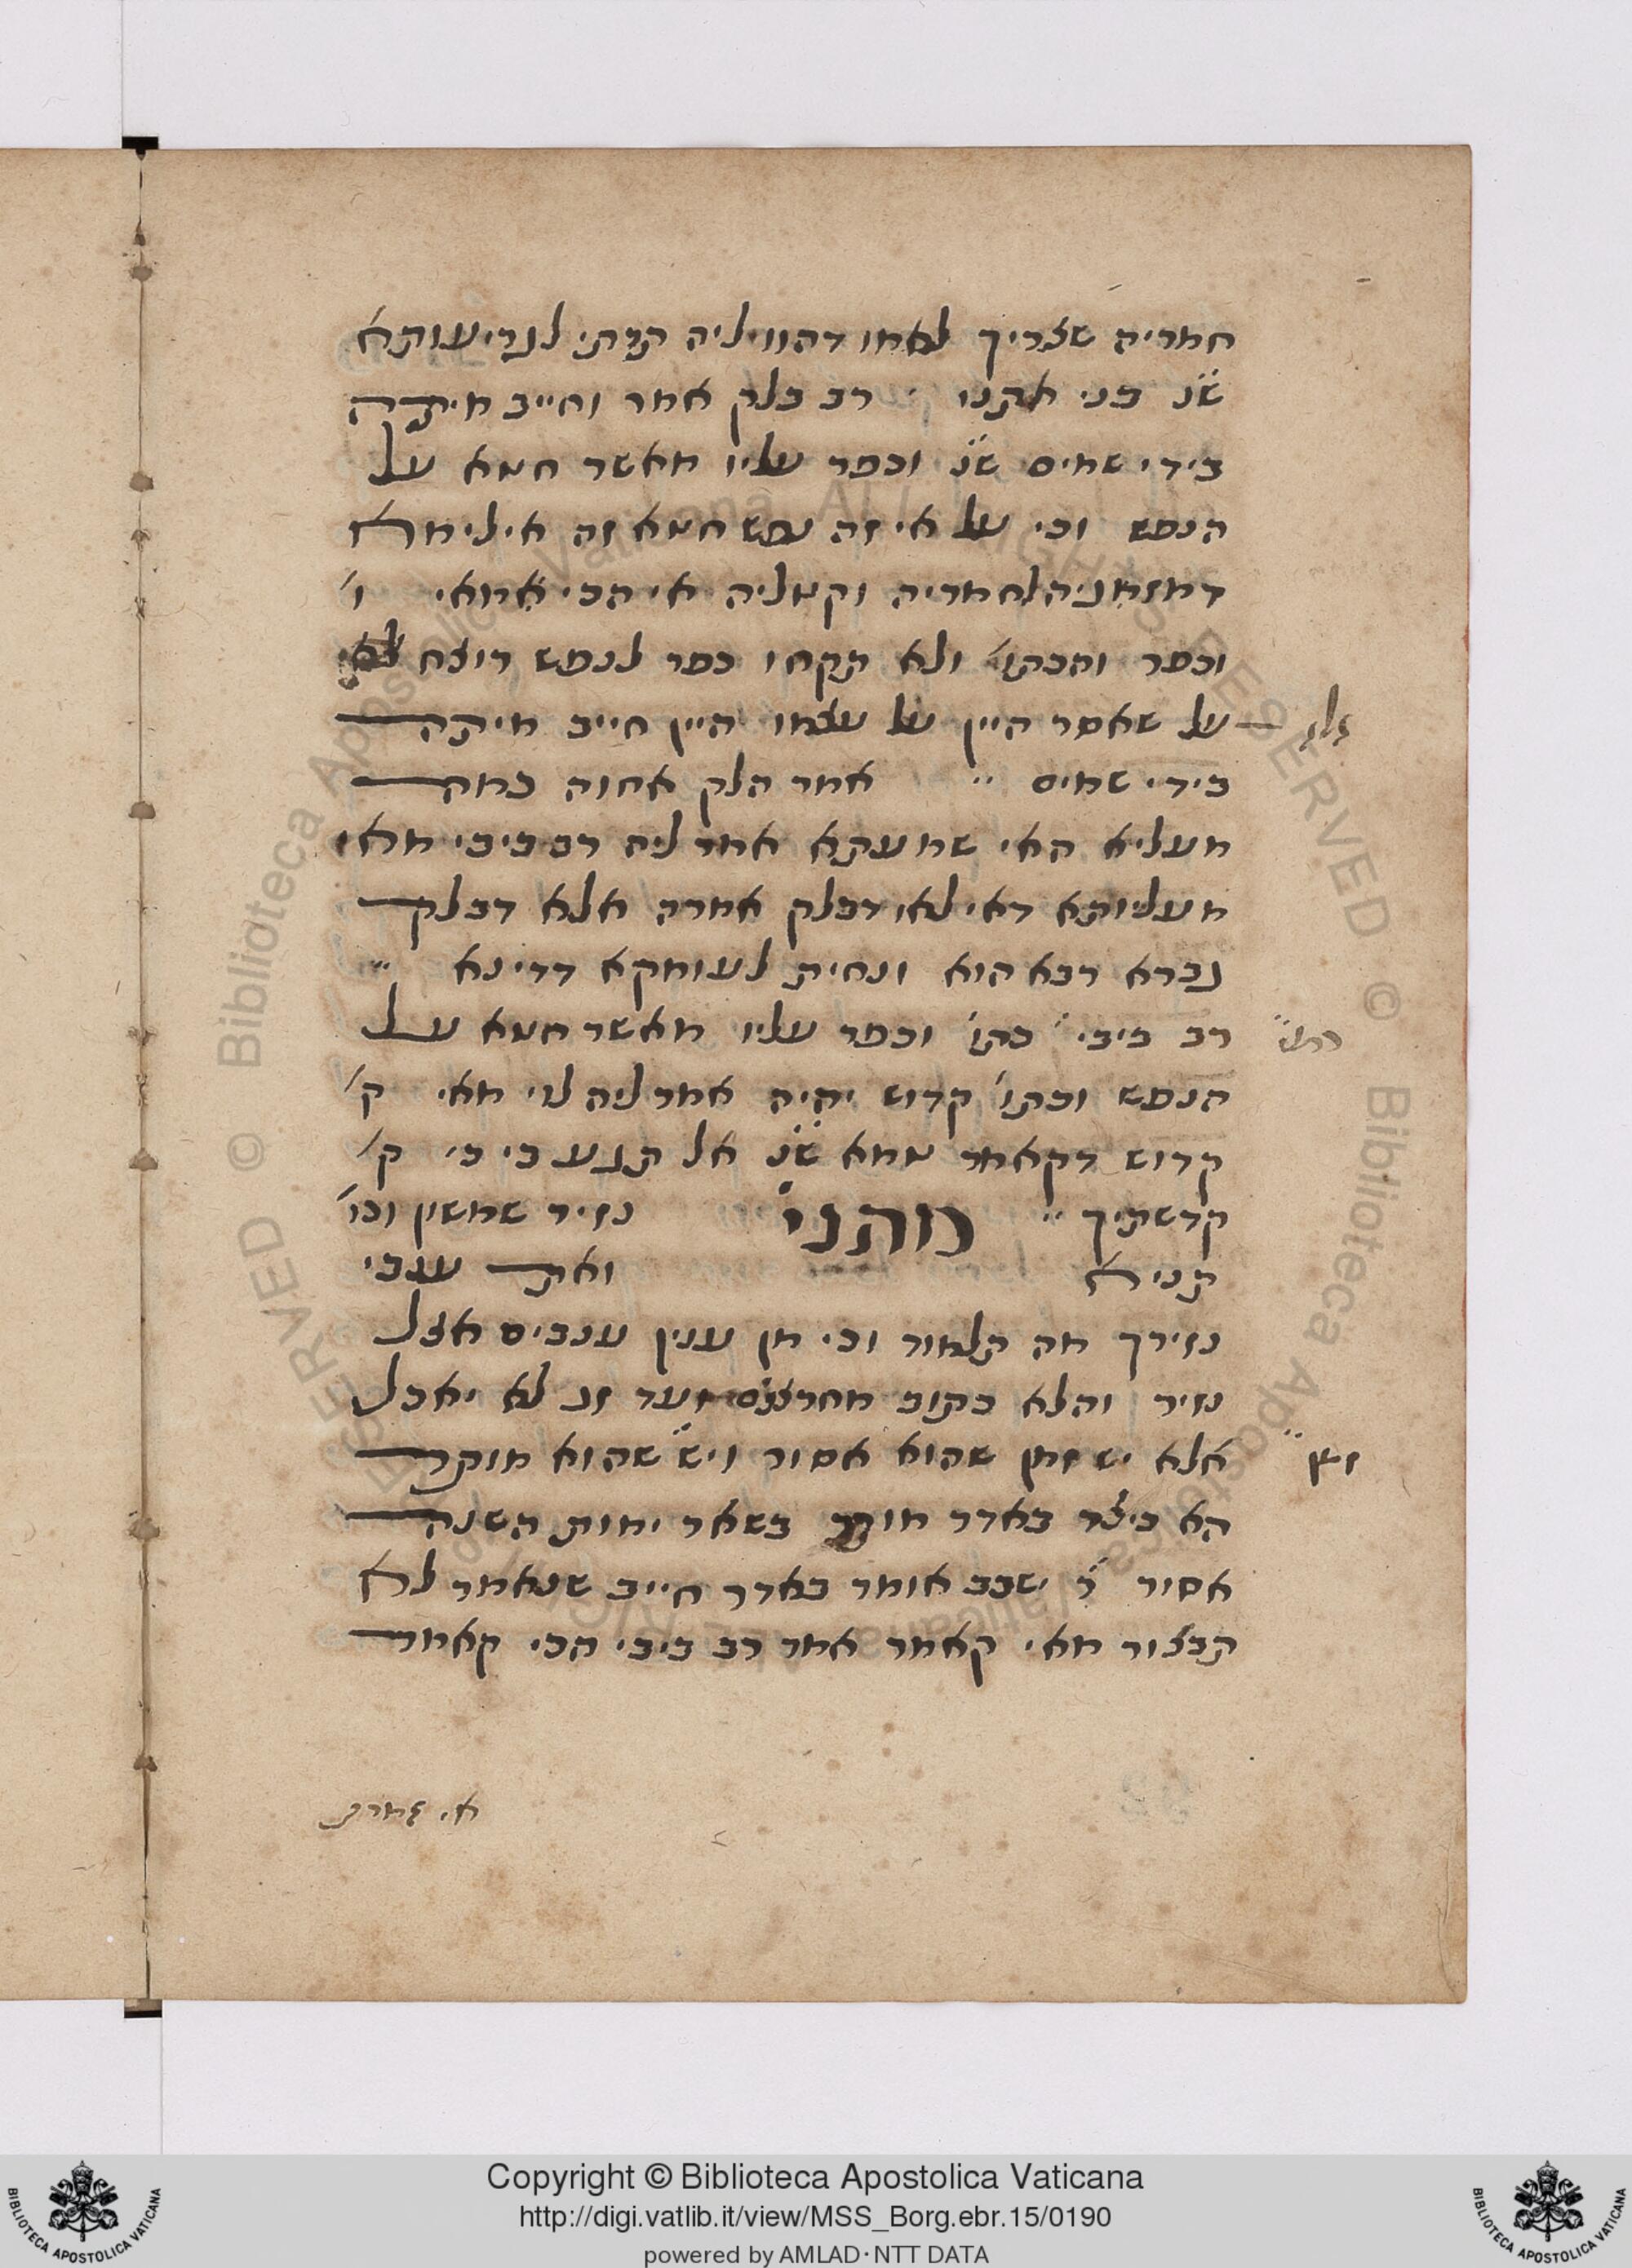 חמריה שצריך לאחו דהוויליה תרתי לגריעותא
שנ׳ בני אתננו רב בלק אמר וחייב מיתה
בידי שמים שנ׳ וכפר עליו מאשר חטא על
הנפש וכי על אי זה נפש חטא זה אילימא
דמזמניה לחמריה וקטליה אי הכי אמאי ו׳
וכפר והכתו׳ ולא תקחו כפר לנפש רוצח אלא
על שאסר היין על עצמו היין חייב מיתה
בידי שמים אמר הלק אחוה כמה
מעליא האי שמעתא אמר ליה רב ביבי מאי
מעליותא דאי לאו דבלק אמרה אלא דבלק
גברא רבא הוא ונחית לעומקא דדינא
רב ביבי כתו׳ וכפר עליו מאשר חטא על
הנפש וכתו׳ קדוש יהיה אמר ליה לוי מאי ק׳
קדוש דקאמר טמא שנ׳ אל תגע בי כי ק׳
קדשתיך מתני׳ נזיר שמשון וכו׳
תניא ואת ענבי
נזירך מה תלמוד וכי מן ענין ענבים אצל
נזיר והלא כתוב מחרצנים ועד זג לא יאכל
אלא יש זמן שהוא אסור ויש שהוא מותר
הא כיצד באדר מותר בשאר ימות השנה
אסור ר׳ ישבב אומר באדר חייב שנאמר לא
תבצור מאי קאמר אמר רב ביבי הכי קאמר
Copyright © Biblioteca Apostolica Vaticana
http://digi.vatlib.it/view/MSS_Borg.ebr.15/0190
powered by AMLAD·NTT DATA